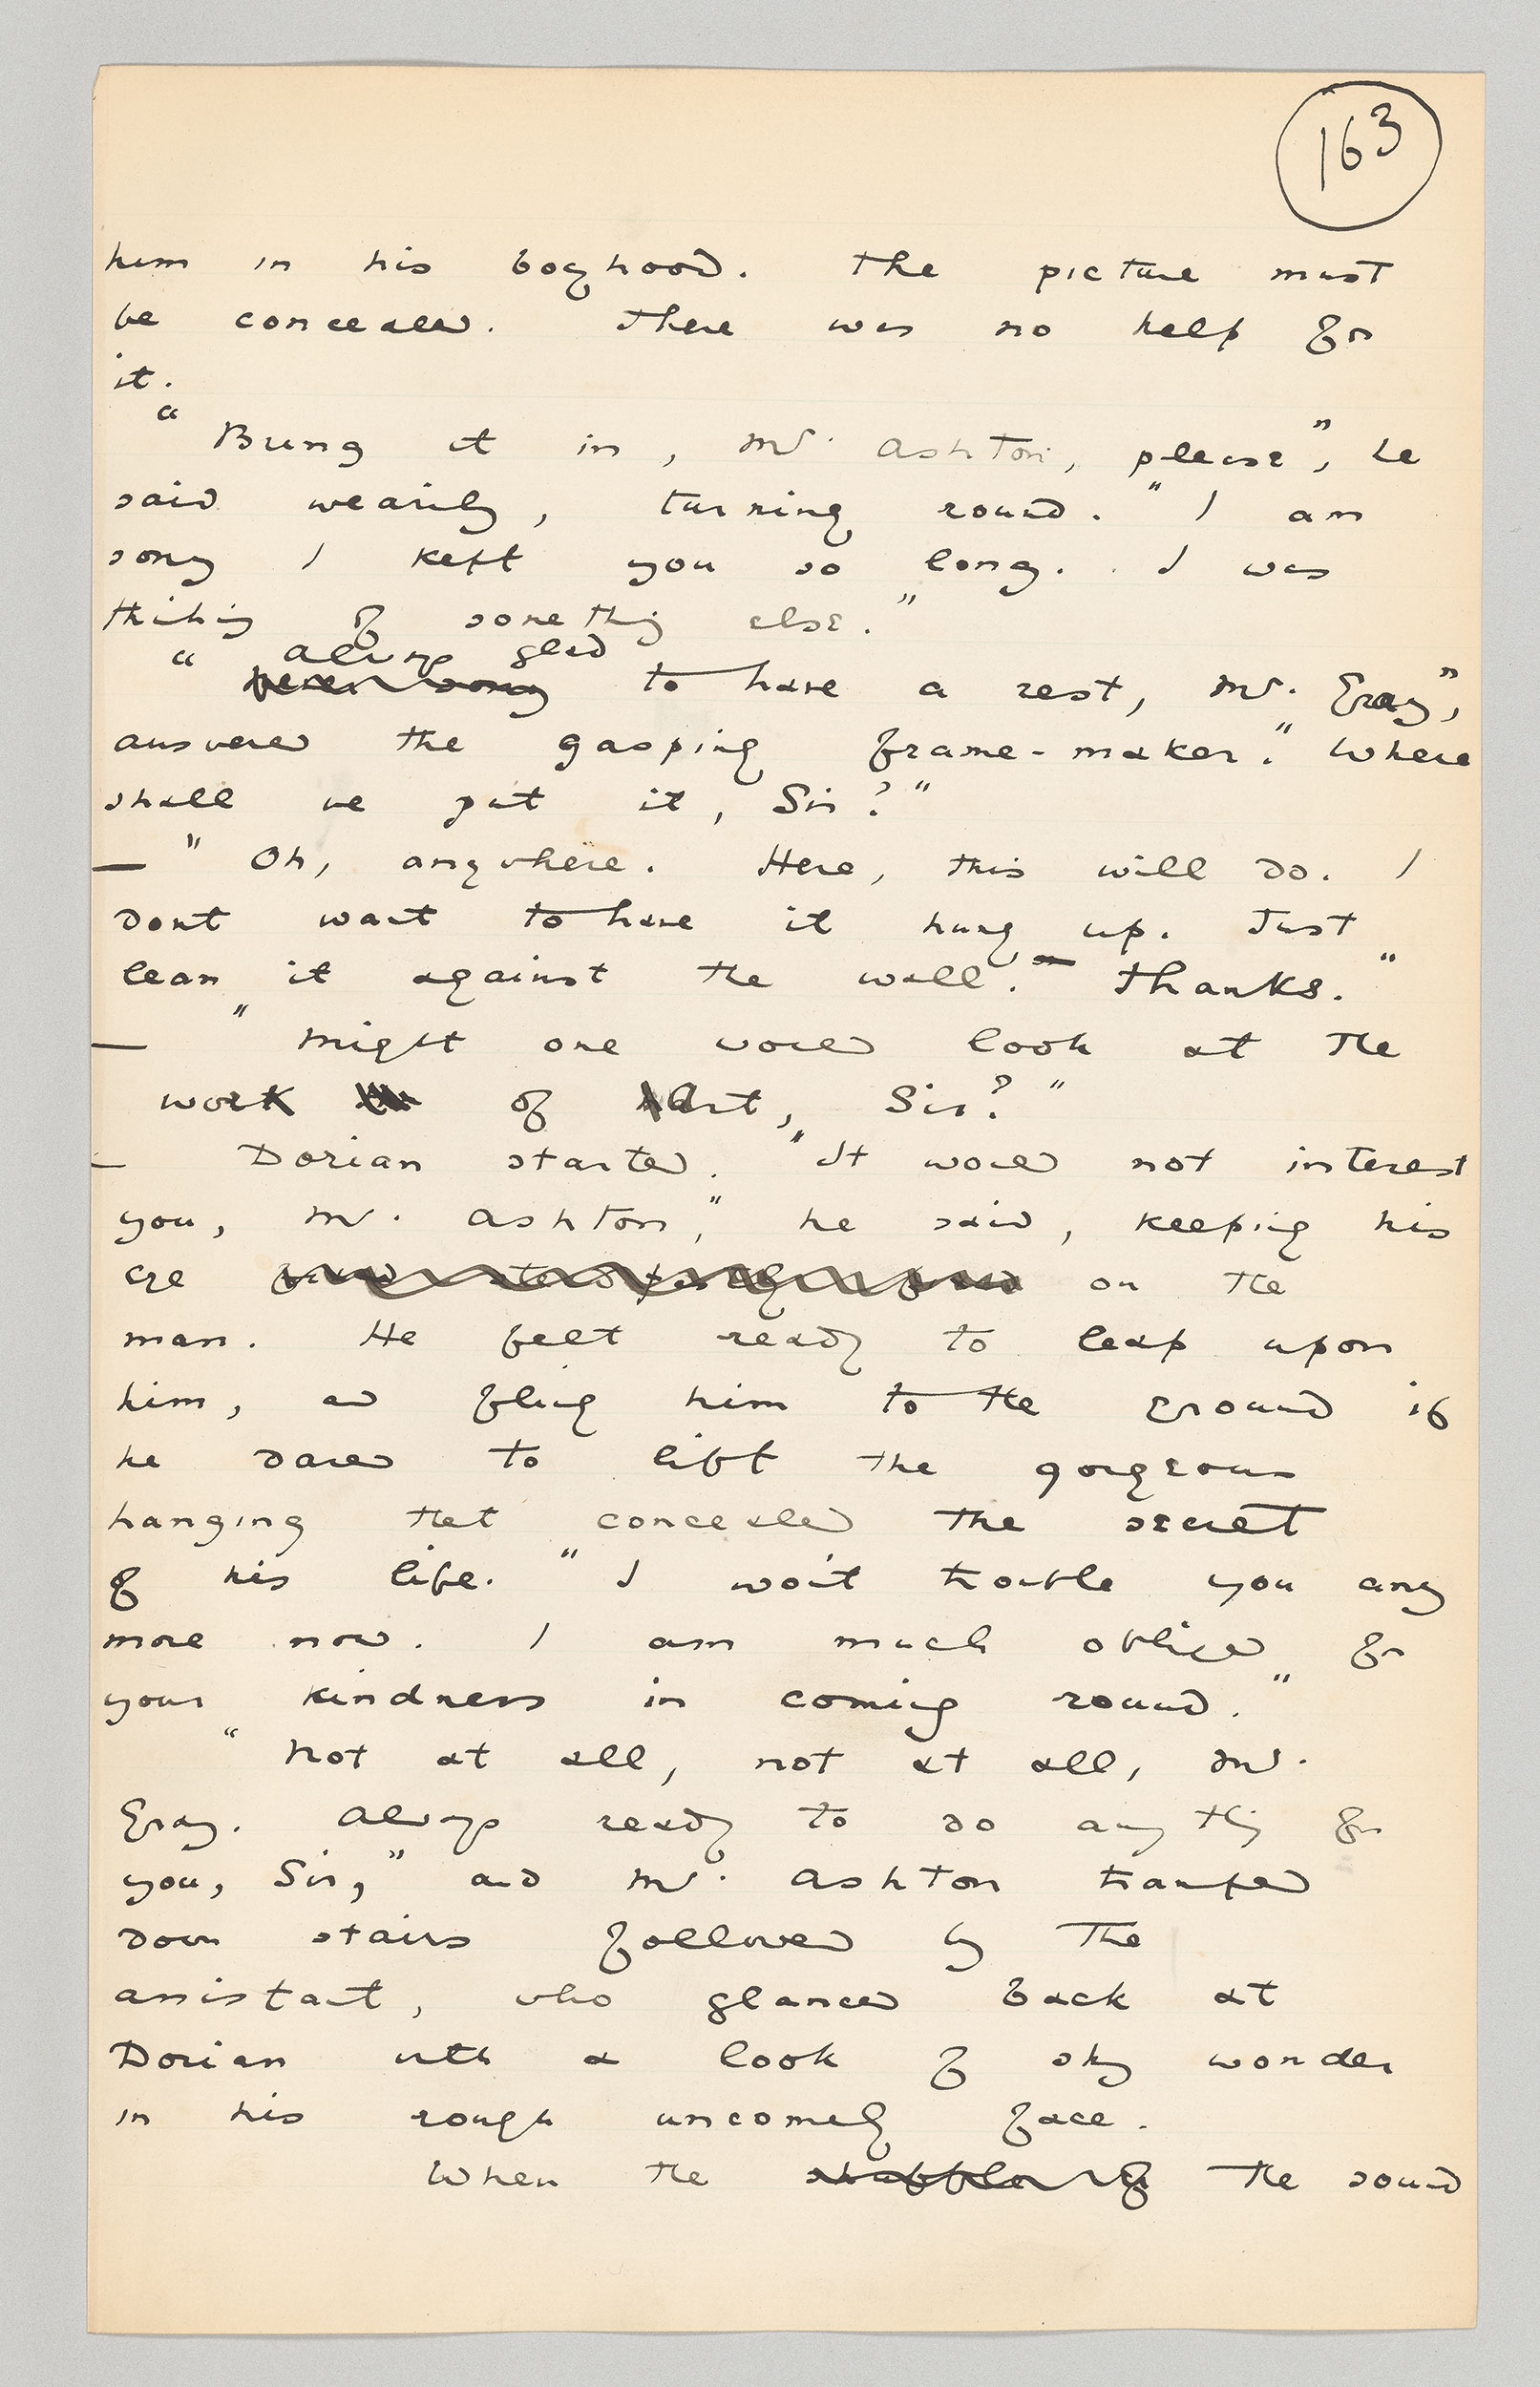 163
him in his boyhood. The picture must
be concealed. There was no help for
it.
"Bring it in, Mr. Ashton, please", he
said wearily, turning round. "I am
sorry I kept you so long. I was
thinking of something else."
always glad
" never sorry to have a rest, Mr. Gray",
answered the gasping frame-maker. "Where
shall we put it, Sir?"
— "Oh, anywhere. Here, this will do. I
dont want to have it hung up. Just
lean it against the wall. Thanks."
— "Might one would look at the
work of Art, Sir?"
— Dorian started. "It would not interest
you, Mr. Ashton," he said, keeping his
eye on the
man. He felt ready to leap upon
him, and fling him to the ground if
he dared to lift the gorgeous
hanging that concealed the secret
of his life. "I won't trouble you any
more now. I am much obliged for
your kindness in coming round."
"Not at all, not at all, Mr.
Gray. Always ready to do anything for
you, Sir," and Mr. Ashton tramped
down stairs followed by the
assistant, who glanced back at
Dorian with a look of shy wonder
in his rough uncomely face.
When the the sound